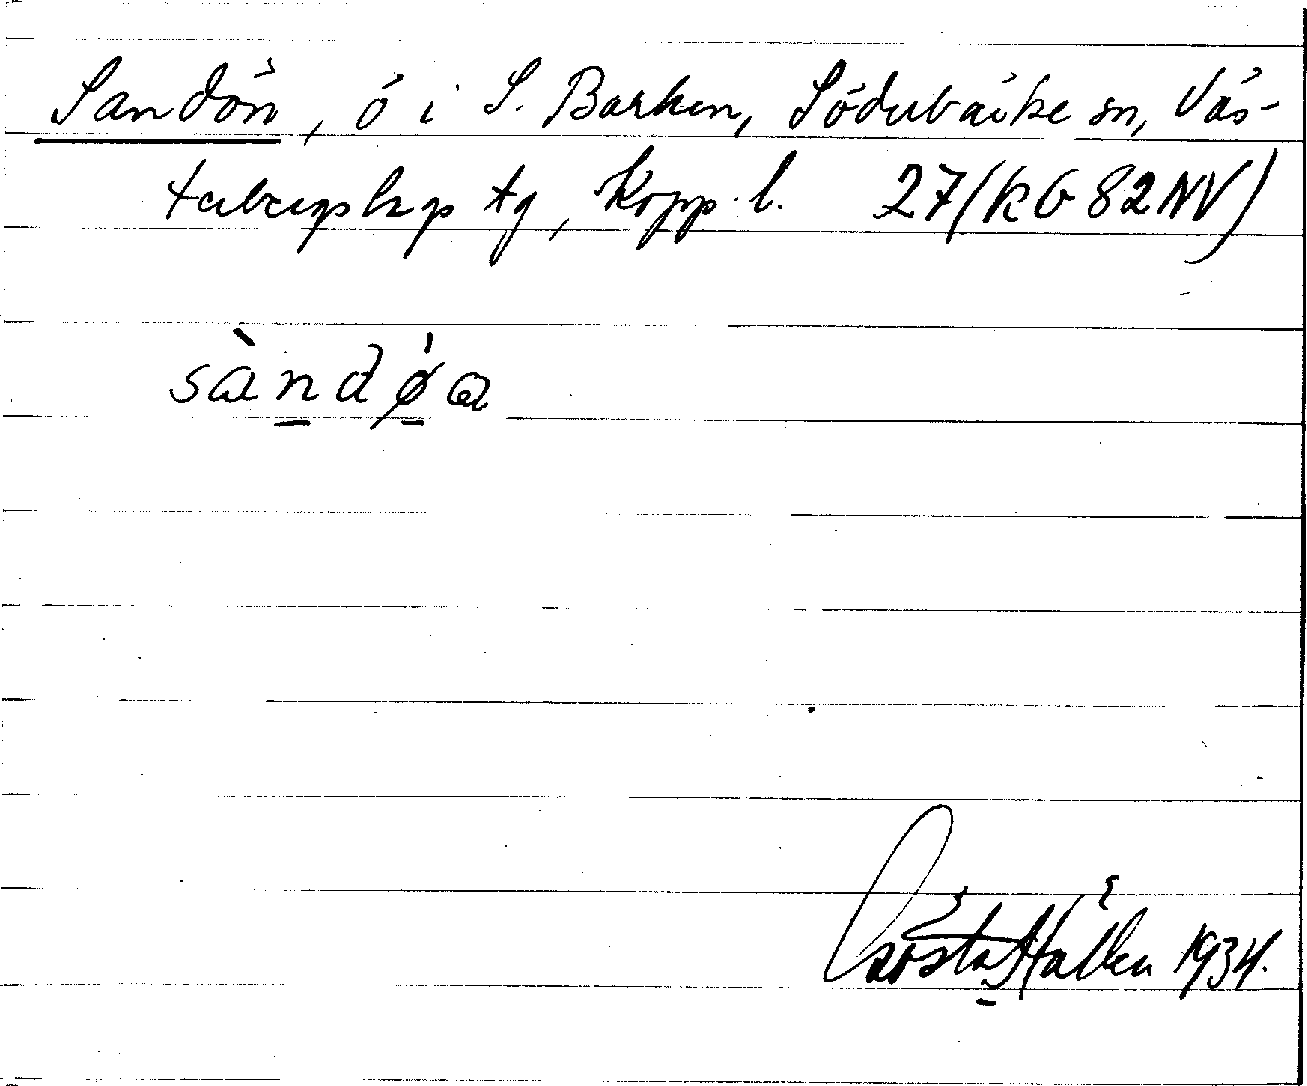 Sandön, ö i S. Barken, Söderbärke sn, Väs-
terbergslags tg, Kopp. l. 27(KG 82 NV)
sàndø̀a
Gösta Hallén 1934.